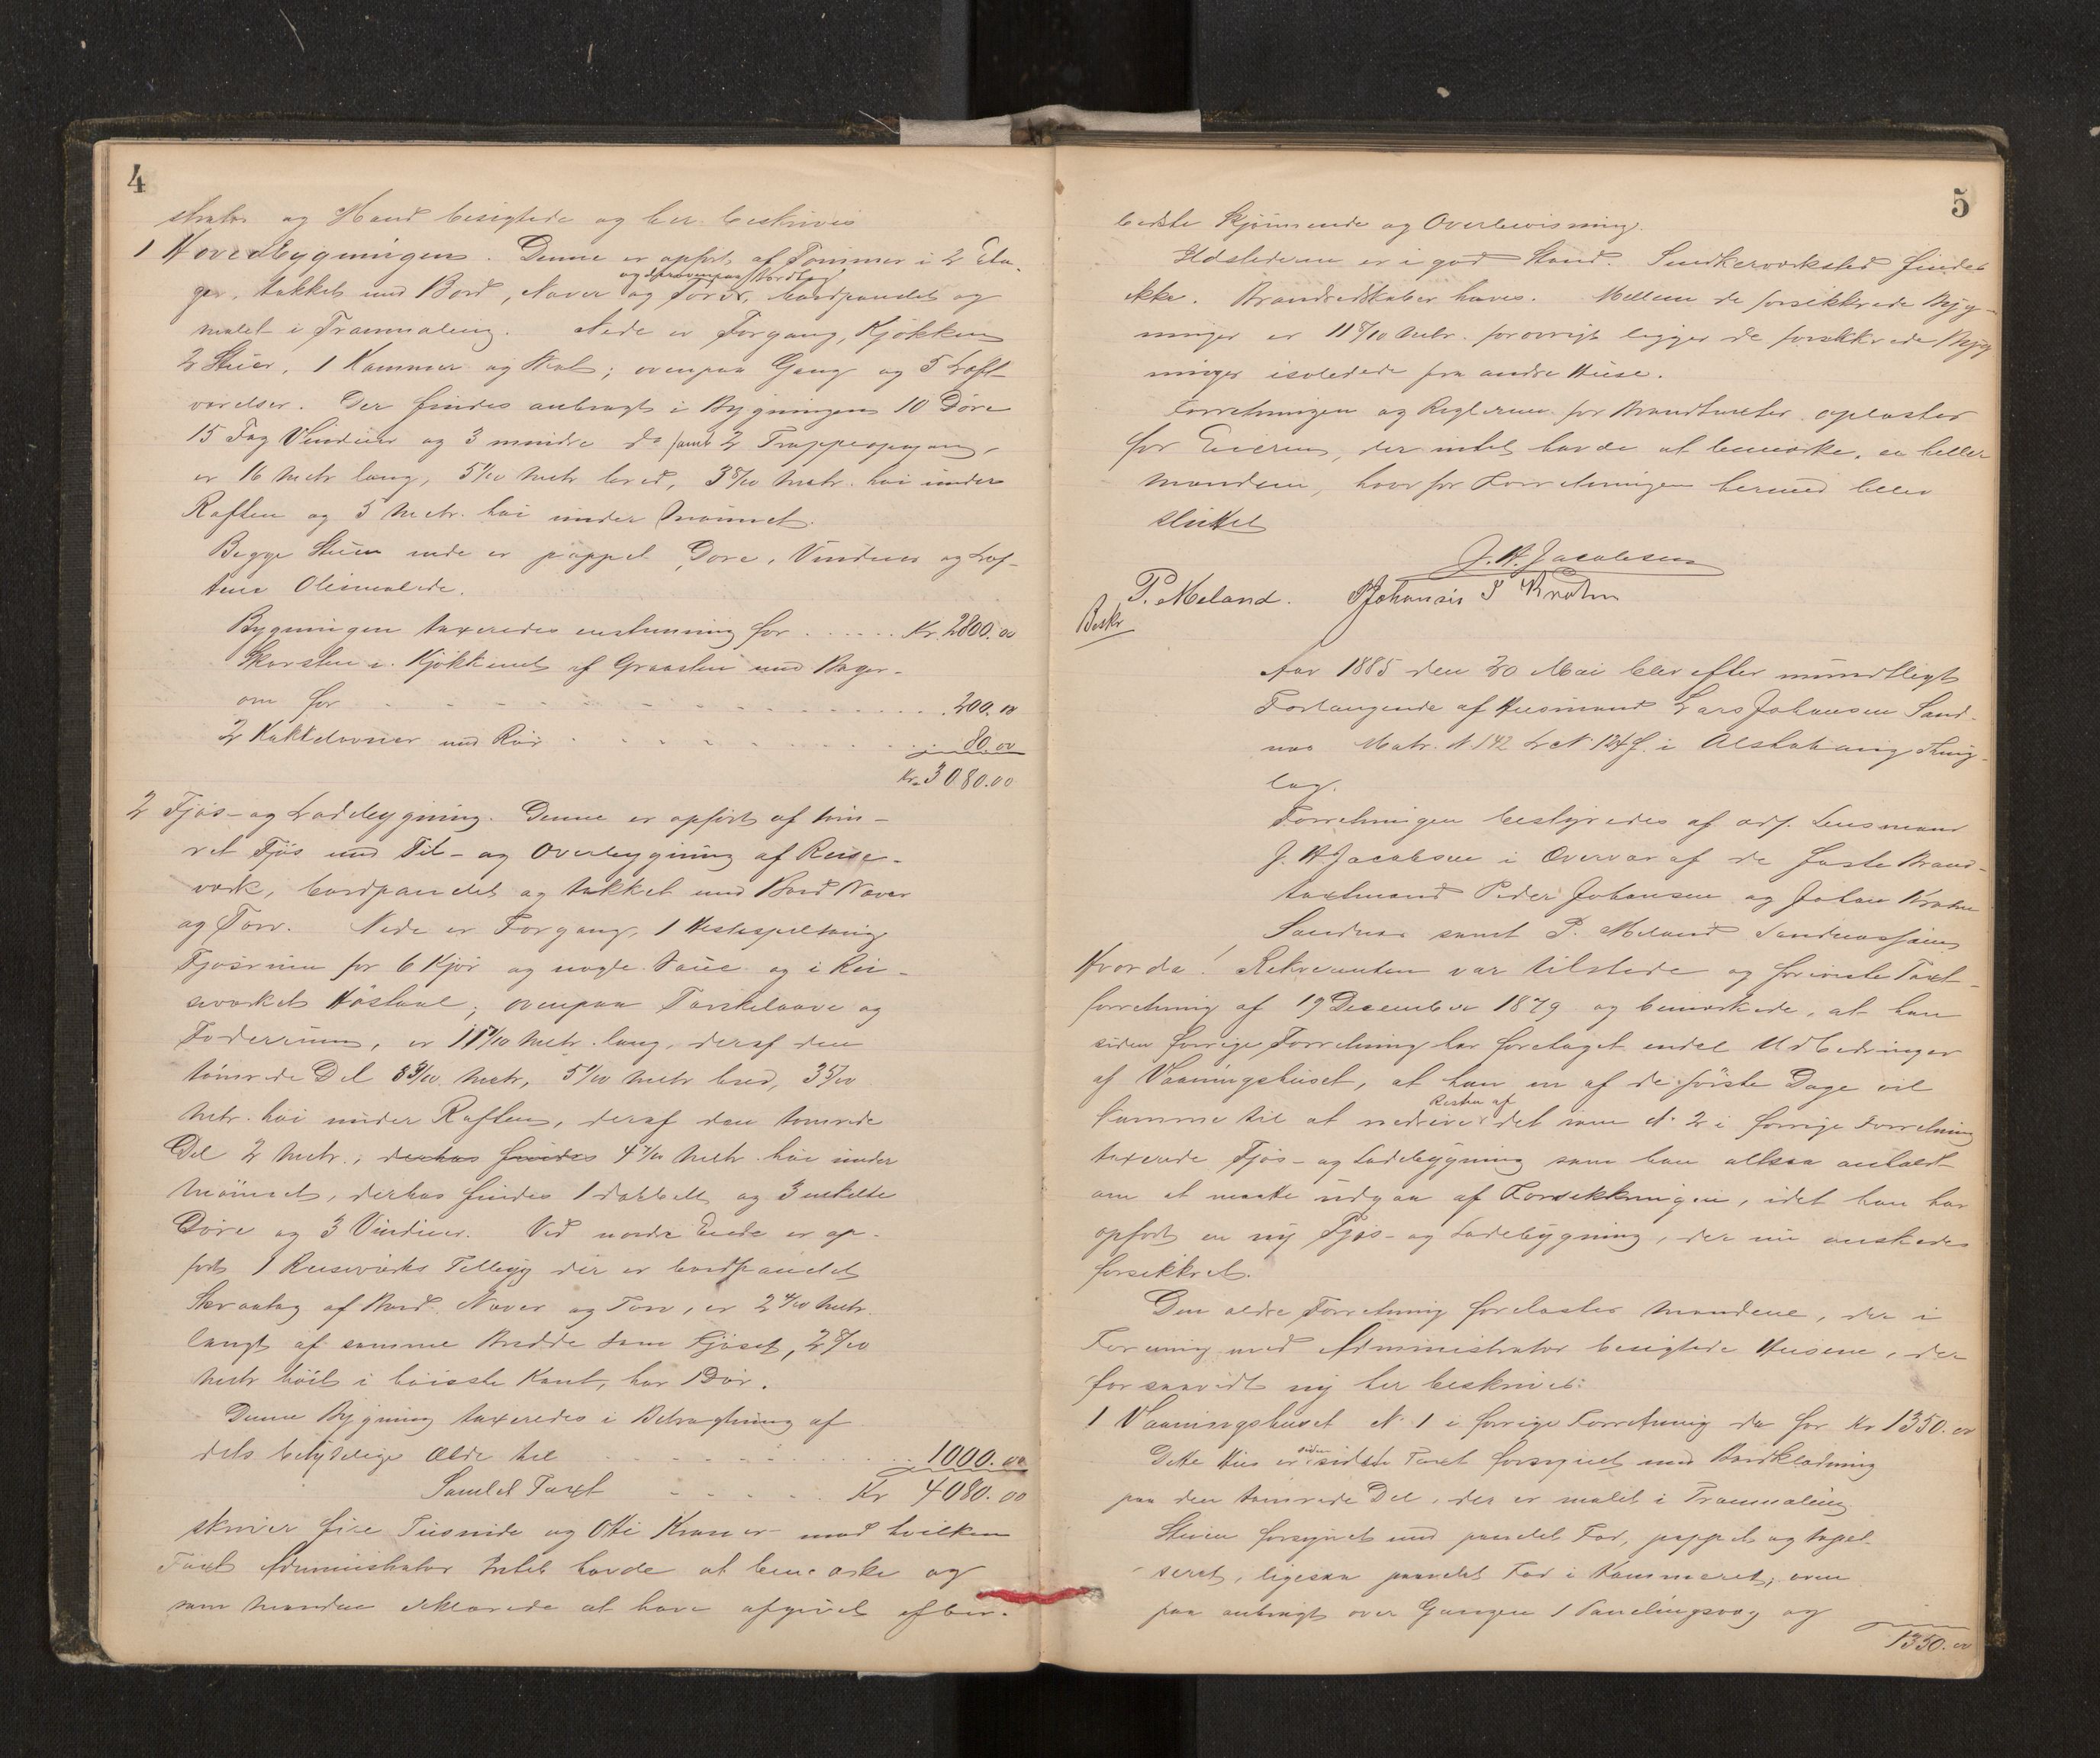 4
strator og Mænd besigtede og her beskrives
1 Hovedbygningen. Denne er opført af Tømmer i 2 Eta-
og derovenpaa Bordtag
ger, tækket med Bord, Næver og Torv, bordpandet og
malet i Tranmaling. Nede er Forgang, Kjøkken
2 Stuer, 1 Kammer og Skab; ovenpaa Gang og 5 Loft-
værelser. Der findes anbragt i Bygningen 10 Døre
15 Fag Vinduer og 3 mindre do samt 2 Trappeopgang,
er 16 Metr lang, 5 1/10 Metr bred, 3 8/10 Metr. høi under
Raften og 5 Metr. høi under Mønnet.
Begge Stuer nede er pappet Døre, Vinduer og Lof-
tene Oliemalede.
Bygningen taxeredes enstemmig for . . . . . Kr 2800.00
Skorsten i Kjøkkenet af Graasten med Bager-
ovn for . . . . . . . . . . 200.00
2 Kakkelovner med Rør . . . . . . . 80.00
Kr. 3080.00
2 Fjøs- og Ladebygning. Denne er opført af tøm-
ret Fjøs med Til- og Overbygning af Reise-
værk, bordpandet og tækket med Bord Næver
og Torv. Nede er Forgang, 1 Hestespiltaug
Fjøsrum for 6 Kjør og nogle Saue og i Rei-
seværket Høstaal; ovenpaa Tærskelaave og
Foderrum, er 11 7/10 Metr. lang, deraf den
tømrede Del 8 8/10 Metr, 5 1/10 Metr bred, 3 5/10
Metr. høi under Raften, deraf den tømrede
Del 2 Metr.; derhos findes 4 7/10 Metr. høi under
Mønnet, derhos findes 1 dobbelt og 3 enkelte
Døre og 3 Vinduer. Ved nordre Ende er op-
ført 1 Reiseværks Tilbyg der er bordpandet
Skraatag af Bord Næver og Torv, er 2 4/10 Metr.
langt af samme Bredde som Fjøset, 2 8/10
Metr høit i høieste Kant, har 1 Dør.
Denne Bygning taxeredes i Betragtning af
dets betydelige Ælde til . . . . . . . 1000.00
Samlet Taxt . . . . . Kr 4080.00
skriver fire Tusinde og Otti Kroner mod hvilken
Taxt Administrator Intet havde at bemærke og
som Mændene erklærede at have afgivet efter-
5
bedste Skjønnende og Overbevisning.
Ildstederne er i god Stand. Snedkerværksted findes
ikke. Brandredskaber haves. Mellem de forsikkrede Byg-
ninger er 11 8/10 Metr. forøvrigt ligger de forsikkrede Byg
ninger isolerede fra andre Huse.
Forretningen og Reglerne for Brandtaxter oplæstes
for Eieren, der intet havde at bemærke, ei heller
Mændene, hvorfor Forretningen hermed blev
sluttet
J. A. Jacobsen
P. Meland. Johansis P Krohn
Beskr
Aar 1885 den 30 Mai blev efter mundtligt
Forlangende af Husmand Lars Johansen Sand-
næs Matr. N 142 L N 124 f. i Alstahaug Thing-
lag.
Forretningen bestyredes af adj. Lensmand
J. A. Jacobsen i Overvær af de faste Brand-
taxtmænd Peder Johansen og Johan Krohn
Sandnæs samt P. Meland Sandnæssjøen
Hvorda! Rekvirenten var tilstede og foreviste Taxt-
forretning af 19 December 1879 og bemærkede, at han
siden forrige Forretning har foretaget endel Udbedringer
af Vaaningshuset, at han en af de første Dage vil
Resten af
komme til at nedrive det som N 2 i forrige Forretning
taxerede Fjøs- og Ladebygning som han altsaa anholdt
om at maatte udgaa af Forsikkringen, idet han har
opført en ny Fjøs- og Ladebygning, der nu ønskedes
forsikkret.
Den ældre Forretning forelæstes Mændene, der i
Forening med Administrator besigtede Husene, der
forsaavidt ny her beskrives:
1 Vaaningshuset N 1 i forrige Forretning da for Kr 1350.00
siden
Dette Hus er sidste Taxt forsynet med Bordklædning
paa den tømrede Del, der er malet i Tranmaling
Stuen forsynet med pandet For, pappet og tapet-
seret, ligesaa pandet For i Kammeret, oven
paa anbragt over Gangen 1 Panelingsvæg og
1350.00